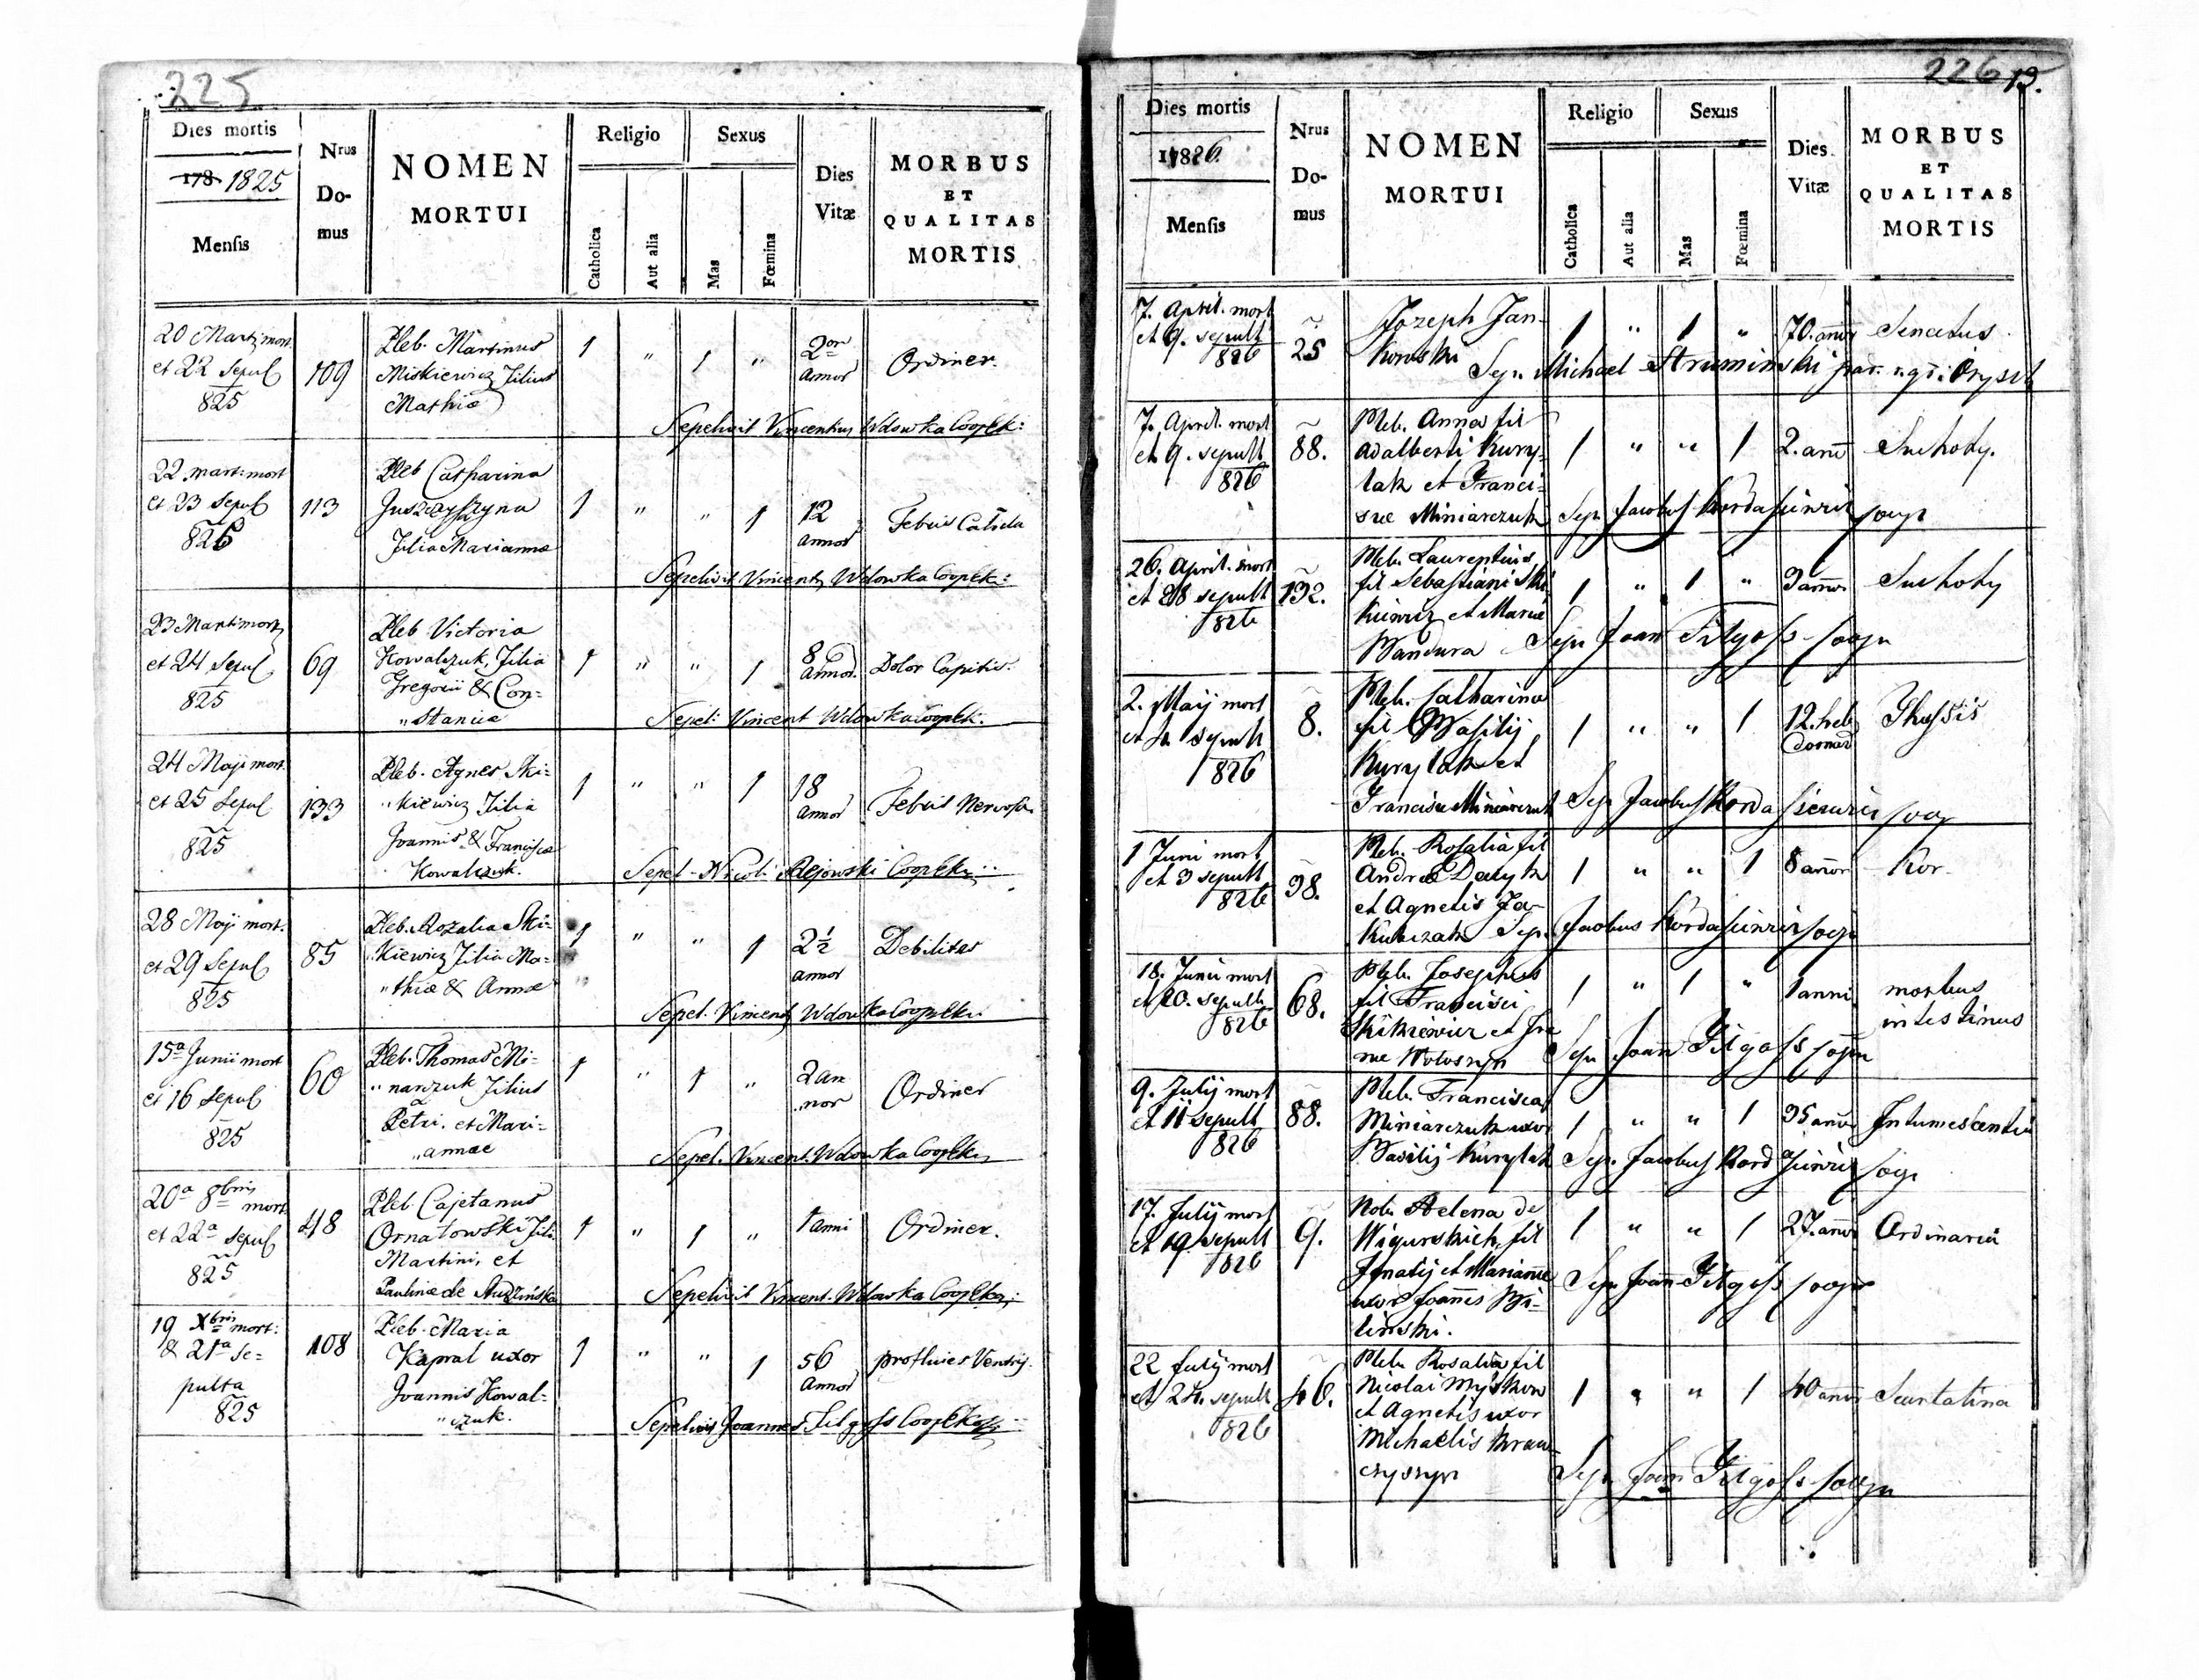 225
Dies mortis
178 1825
Mensis
Nrus
Do-
mus
NOMEN
MORTUI
Religio
Catholica
Aut alia
Sexus
Mas
Fœmina
Dies
Vitæ
MORBUS
ET
QUALITAS
MORTIS
20 Martij mort.
et 22 Sepul
825
109
Pleb. Martinus
Miskiewicz Filius
Mathiæ
1 " 1 "
2 annor
Ordiner.
Sepelivit Vincentius Wdowka Coop
22 mart: mort
et 23 Sepul
825
113
Pleb Catharina
Juszczyszyna
Filia Mariannæ
1 " " 1
12
annor
Febris Calida
Sepelivit Vincent Wdowka
23 Marti mort
et 24 Sepul
825
69
Pleb Victoria
Kowalczuk, Filia
Gregorii & Con=
"stanciæ
1 " " 1
8
annor.
Dolor Capitis.
Sepel: Vincent Wdowka
24 Maji mort.
et 25 Sepul
825
133
Pleb. Agnes Ski=
"kiewicz Filia
Joannis & Franciscæ
Kowalczuk.
1 " " 1
18
annor
Febris Nervosa
Sepel.
28 Maji mort.
et 29 Sepul
825
85
Pleb. Rozalia Ski=
"kiewicz Filia Ma=
"thiæ & Annæ
1 " " 1
2½
annor
Debilitas
Sepel. Vincent Wdowka
15ª Junii mort
et 16 Sepul
825
60
Pleb. Thomas Mi=
"narczuk Filius
Petri, et Mari=
"annae
1 " 1 "
2 an
"nor
Ordiner
Sepel. Vincent. Wdowka
20ª 8bris mort.
et 22ª Sepul
825
48
Pleb Cajetanus
Ornatowski Fili
Martini, et
Paulinæ de
1 " 1 "
1 anni
Ordiner.
Sepelivit Vincent. Wdowka
19 Xbris mort:
& 21ª Se=
pulta
825
108
Pleb. Maria
Kapral uxor
Joannis Kowal=
"czuk.
1 " " 1
56
Annor
profluvies Ventris.
Sepelivit Joannes Filgoss
226 19.
Dies mortis
1826.
Mensis
Nrus
Do-
mus
NOMEN
MORTUI
Religio
Catholica
Aut alia
Sexus
Mas
Fœmina
Dies
Vitæ
MORBUS
ET
QUALITAS
MORTIS
7. April. mort
et 9. sepult
826
25
Jozeph Jan-
kowski
1 " 1 "
70. annor
Senectus
Sep. Michael Strumiński
7. April. mort
et 9. sepult
826
88.
Pleb. Anna fil
Adalberti Kury-
lak et Franci-
scæ Miniarczuk
1 " " 1
2. ann
Suchoty.
Sep. Jacobus Kordasiewicz
26. April. mort
et 28 sepult
826
132.
Pleb. Laurentius
fil Sebastiani Ski
kiewicz et Mariæ
Bandura
1 " 1 "
3 annor
Suchoty
Sep. Joan Filgoss
2. Maij mort
et 4. sepult
826
8.
Pleb. Catharina
fil Wasilij
Kurylak et
Franciscæ Miniarczuk
1 " " 1
12. heb
domad
Phtysis
Sep. Jacobus Kordasiewicz
1 Juni mort
et 3 sepult
826
98.
Pleb. Rosalia fil
Andreæ
et Agnetis Ja-
kubczak
1 " " 1
8 annor
Kor
Sep. Jacobus Kordasiewicz
18. Junii mort
et 20. sepult
826
68.
Pleb. Josephus
fil Francisci
Skikiewicz et
Woloszyn
1 " 1 "
1 anni
morbus
intestinus
Sep. Joann Filgoss
9. Julij mort
et 11 sepult
826
88.
Pleb. Francisca
Miniarczuk uxor
Wasilij Kurylak
1 " " 1
35 annor
Intumescentia
Sep. Jacobus Kordasiewicz
17. Julij mort
et 19 sepult
826
9.
Nob. Helena de
Wigurskich, fil
Ignatij et Mariannæ
uxor Joannis Bi-
linski.
1 " " 1
27. annor
Ordinaria
Sep. Joann Filgoss
22 Julij mort
et 24. sepult
826
46.
Pleb. Rosalia fil
Nicolai Myskow
et Agnetis uxor
Michaelis Kraw-
czyszyn
1 " " 1
40 annor
Scarlatina
Sep. Joann Filgoss